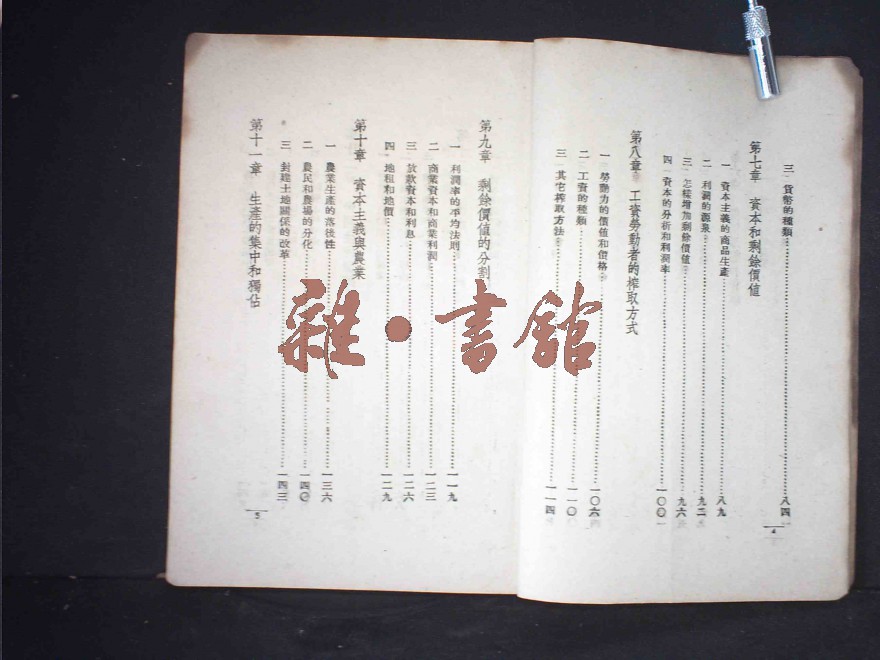 三 貨幣的種類……八四
第七章 資本和剩餘價値
一 資本主義的商品生產……八九
二 利潤的源泉……九二
三 怎樣增加剩餘價値……九六
四 資本的分析和利潤率……一〇〇
第八章 工資勞動者的榨取方式
一 勞動力的價値和價格……一〇六
二 工資的種類……一一〇
三 其它榨取方法……一一四
4
第九章 剩餘價値的分割
一 利潤率的平均法則……一一九
二 商業資本和商業利潤……一二三
三 放款資本和利息……一二六
四 地租和地價……一二九
第十章 資本主義與農業
一 農業生產的落後性……一三六
二 農民和農場的分化……一四〇
三 封建土地關係的改革……一四三
第十一章 生產的集中和獨佔
5
雜·書館